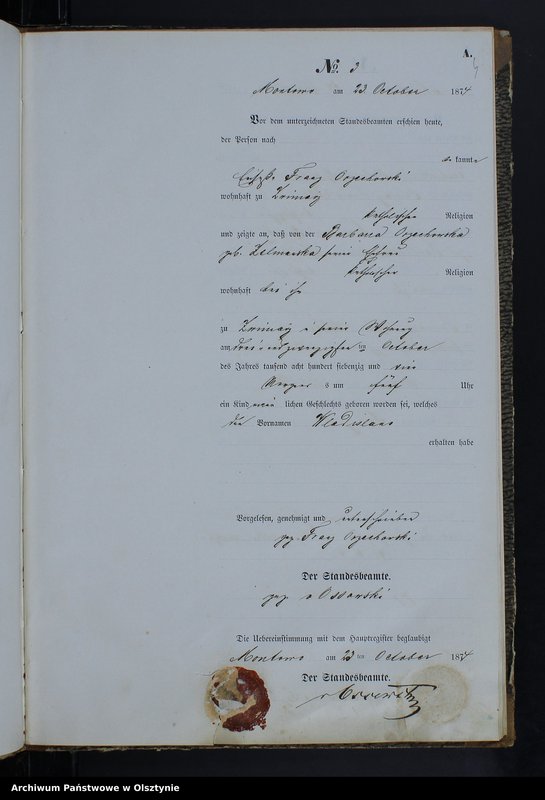 A.
No. 3
Montowo am 23 October 1874
Vor dem unterzeichneten Standesbeamten erschien heute,
der Person nach
kannt
Franz Orzechowski
wohnhaft zu
katholischer Religion
und zeigte an, daß von der Barbara Orzechowska
geb. seine Ehefrau
katholischer Religion
wohnhaft bei ihm
zu in seine Wohnung
am drei und zwanzigsten ten October
des Jahres tausend acht hundert siebenzig und vier
Morgens um fünf Uhr
ein Kind männlichen Geschlechts geboren worden sei, welches
den Vornamen Wladislaus
erhalten habe
Vorgelesen, genehmigt und unterschrieben
gez. Franz Orzechowski
Der Standesbeamte.
gez. v Ossowski
Die Uebereinstimmung mit dem Hauptregister beglaubigt
Montowo am 23 ten October 1874
Der Standesbeamte.
v Ossowski
Archiwum Państwowe w Olsztynie